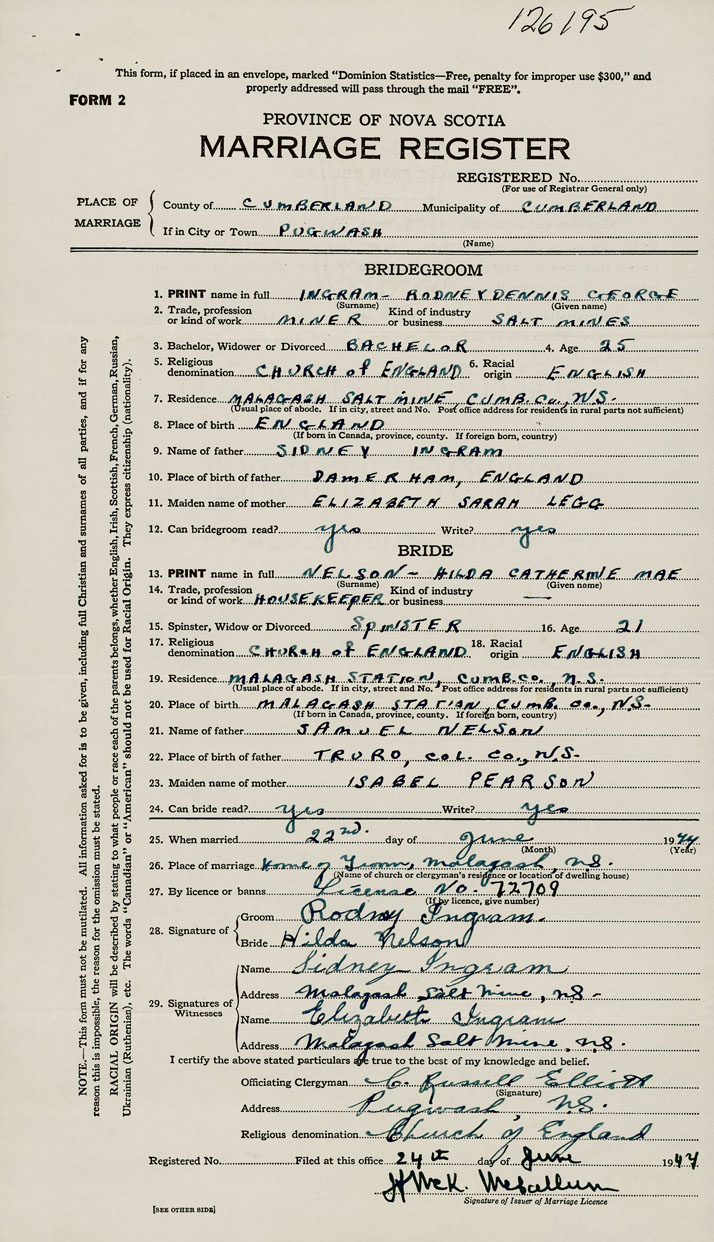 126195
This form, if placed in an envelope, marked "Dominion Statistics—Free, penalty for improper use $300," and
properly addressed will pass through the mail "FREE".
FORM 2
PROVINCE OF NOVA SCOTIA
MARRIAGE REGISTER
REGISTERED No.
(For use of Registrar General only)
PLACE OF MARRIAGE
County of CUMBERLAND Municipality of CUMBERLAND
If in City or Town PUGWASH
(Name)
BRIDEGROOM
1. PRINT name in full INGRAM- RODNEY DENNIS GEORGE
(Surname) (Given name)
2. Trade, profession or kind of work MINER Kind of industry or business SALT MINES
3. Bachelor, Widower or Divorced BACHELOR 4. Age 25
5. Religious denomination CHURCH of ENGLAND 6. Racial origin ENGLISH
7. Residence MALAGASH SALT MINE, CUMB. Co., N.S.
(Usual place of abode. If in city, street and No. Post office address for residents in rural parts not sufficient)
8. Place of birth ENGLAND
(If born in Canada, province, county. If foreign born, country)
9. Name of father SIDNEY INGRAM
10. Place of birth of father DAMERHAM, ENGLAND
11. Maiden name of mother ELIZABETH SARAH LEGG
12. Can bridegroom read? yes Write? yes
BRIDE
13. PRINT name in full NELSON- HILDA CATHERINE MAE
(Surname) (Given name)
14. Trade, profession or kind of work HOUSEKEEPER Kind of industry or business —
15. Spinster, Widow or Divorced SPINSTER 16. Age 21
17. Religious denomination CHURCH of ENGLAND 18. Racial origin ENGLISH
19. Residence MALAGASH STATION, CUMB. Co., N.S.
(Usual place of abode. If in city, street and No. Post office address for residents in rural parts not sufficient)
20. Place of birth MALAGASH STATION, CUMB. Co., N.S-
(If born in Canada, province, county. If foreign born, country)
21. Name of father SAMUEL NELSON
22. Place of birth of father TRURO, COL. Co., N.S-
23. Maiden name of mother ISABEL PEARSON
24. Can bride read? yes Write? yes
25. When married 22nd. day of June 1944
(Month) (Year)
26. Place of marriage Home of Groom, Malagash, N.S.
(Name of church or clergyman's residence or location of dwelling house)
27. By licence or banns License No. 72709
(If by licence, give number)
28. Signature of
Groom Rodney Ingram.
Bride Hilda Nelson
29. Signatures of Witnesses
Name Sidney Ingram
Address Malagash Salt Mine, N.S-
Name Elizabeth Ingram
Address Malagash Salt Mine, N.S.
I certify the above stated particulars are true to the best of my knowledge and belief.
Officiating Clergyman C. Russell Elliott
(Signature)
Address Pugwash, N.S.
Religious denomination Church of England
Registered No. Filed at this office 24th day of June 1944
H McK. McCallum
Signature of Issuer of Marriage Licence
[SEE OTHER SIDE]
NOTE.—This form must not be mutilated. All information asked for is to be given, including full Christian and surnames of all parties, and if for any
reason this is impossible, the reason for the omission must be stated.
RACIAL ORIGIN will be described by stating to what people or race each of the parents belongs, whether English, Irish, Scottish, French, German, Russian,
Ukrainian (Ruthenian), etc. The words "Canadian" or "American" should not be used for Racial Origin. They express citizenship (nationality).